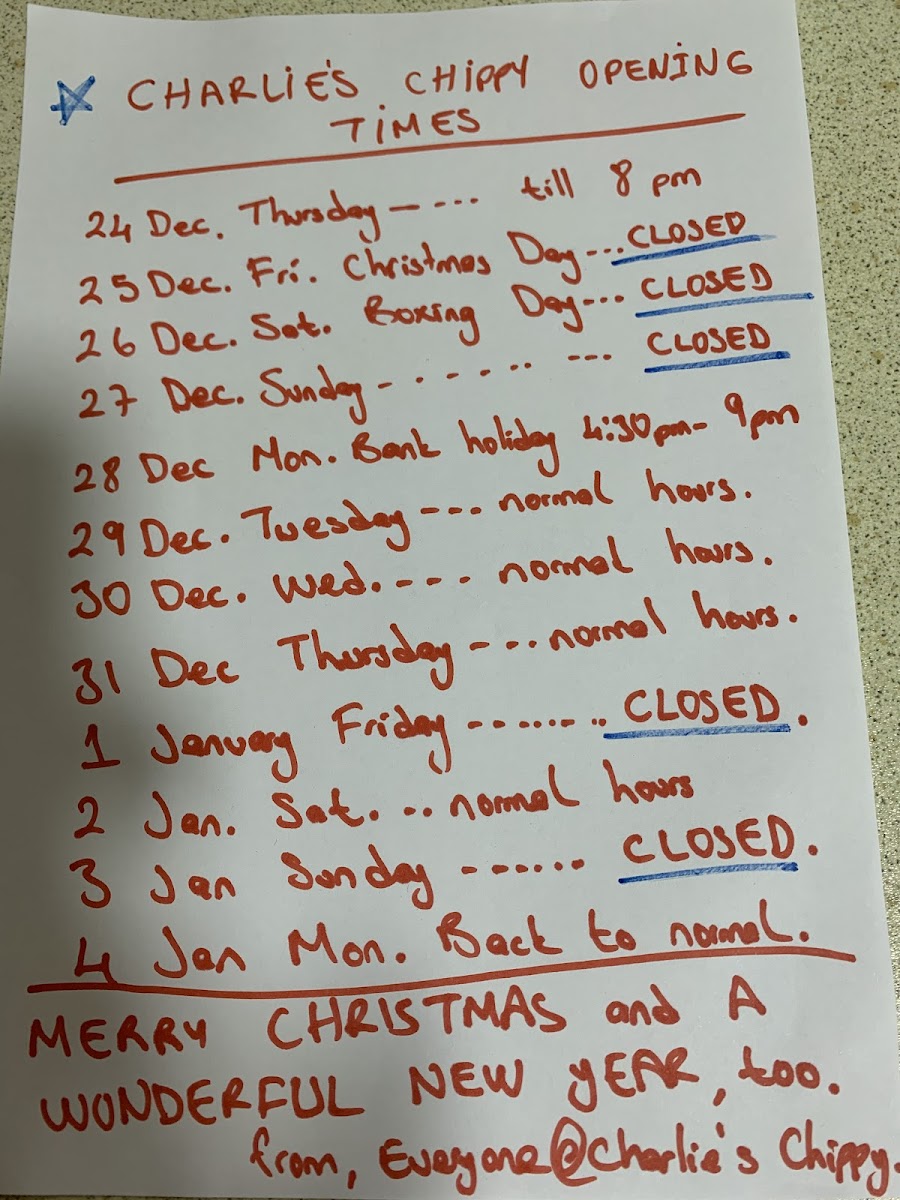 CHARLIE'S CHIPPY OPENING
TIMES
24 Dec. Thursday - --- till 8 pm
25 Dec. Fri. Christmas Day --... CLOSED
26 Dec. Sat. Boxing Day --... CLOSED
27 Dec. Sunday - - - - -- --- CLOSED
28 Dec Mon. Bank holiday 4:30pm- 9pm
29 Dec. Tuesday --- normal hours.
30 Dec. Wed. --- normal hours.
31 Dec Thursday --.. normal hours.
1 January Friday -------.. CLOSED.
2 Jan. Sat. ... normal hours
3 Jan Sunday ------ CLOSED.
4 Jan Mon. Back to normal.
MERRY CHRISTMAS and A
WONDERFUL NEW YEAR, too.
from, Everyone@Charlie's Chippy.